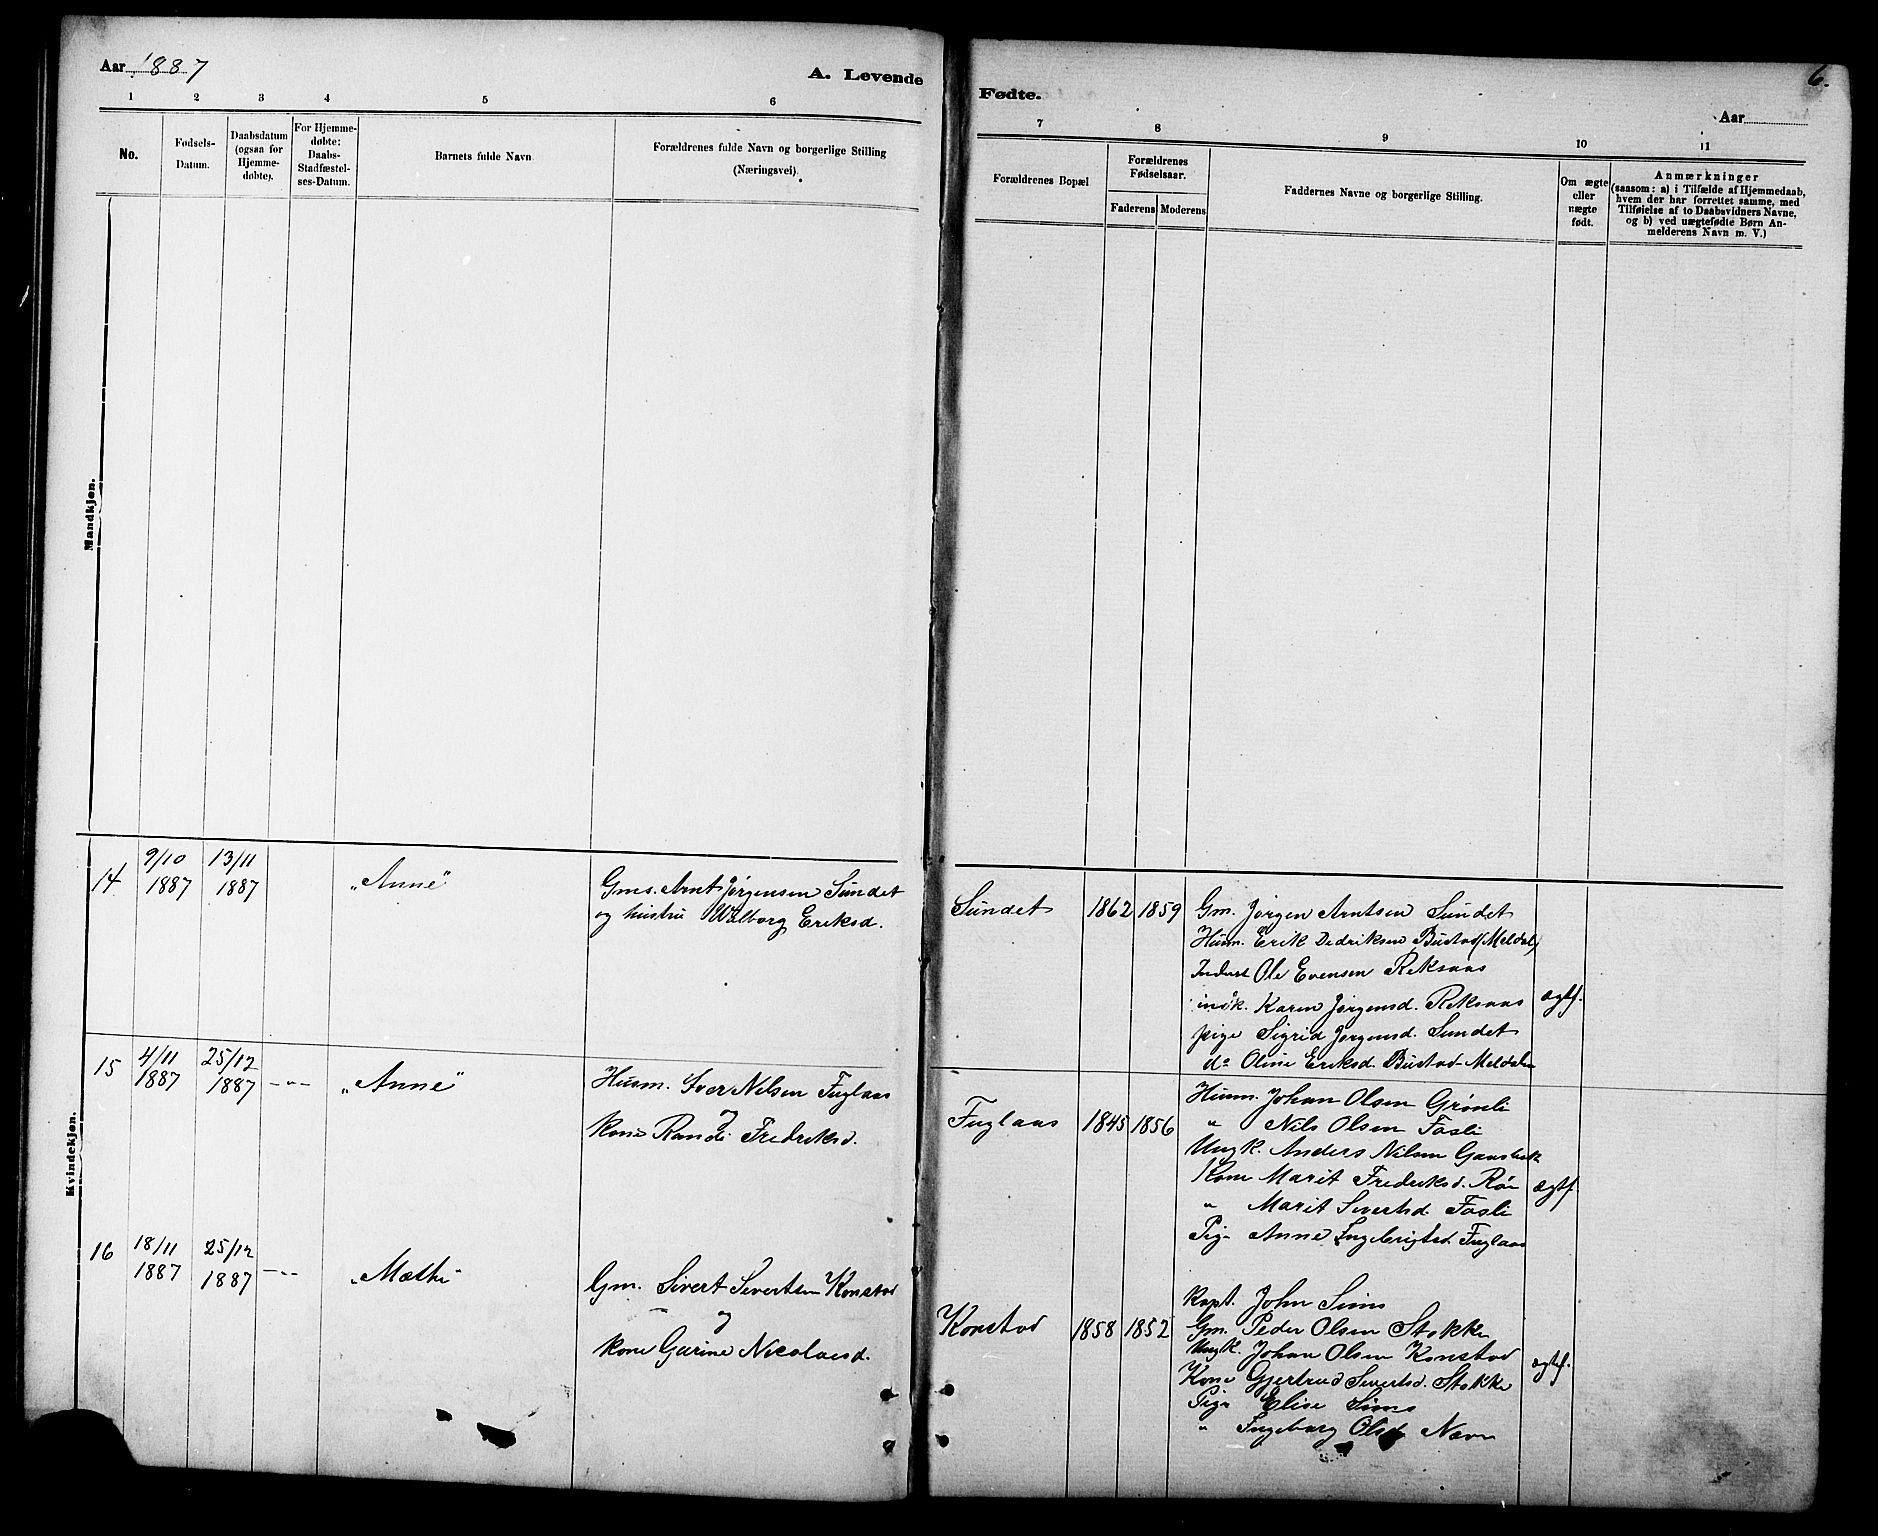 Aar 1887
A. Levende
Fødte.
6.
Aar
1 2 3 4 5 6
7 8 9 10 11
No.
Fødsels-
Datum.
Daabsdatum
(ogsaa for
Hjemme-
døbte).
For Hjemme-
døbte:
Daabs-
Stadfæstel-
ses-Datum.
Barnets fulde Navn
Forældrenes fulde Navn og borgerlige Stilling
(Næringsvei).
Forældrenes Bopæl
Forældrenes
Fødselsaar.
Faderens Moderens
Faddernes Navne og borgerlige Stilling.
Om ægte
eller
uægte
født.
Anmærkninger
(saasom: a) i Tilfælde af Hjemmedaab,
hvem der har forrettet samme, med
Tilføielse af to Daabsvidners Navne,
og b) ved uægtefødte Børn An-
melderens Navn m. V.)
Mandkjøn.
Kvindekjøn.
14
9/10
1887
13/11
1887
"Anne"
Gms. Arnt Jørgensen Sundet
og hustru Walborg Eriksd.
Sundet
1862 1859
Gm. Jørgen Arntsen Sundet
Husm. Erik Dedriksen Bustad (Meldal)
Inderst Ole Evensen Reksaas
indk. Karen Jørgensd. Reksaas
pige Sigrid Jørgensd. Sundet
do Oline Eriksd. Bustad Meldalen
ægtf.
15
4/11
1887
25/12
1887
-"-
"Anne"
Husm. Iver Nilsen Fuglaas
og
kone Randi Fredriksd.
Fuglaas
1845 1856
Husm. Johan Olsen Grønli
" Nils Olsen Fosli
Ungk. Anders Nilsen Gaasbakk
Kone Marit Fredriksd. Røe
" Marit Sivertsd. Fosli
Pige Anne Ingebrigtsd. Fuglaas
ægtf.
16
18/11
1887
25/12
1887
-"-
"Mæthe"
Gm. Sivert Sivertsen Konstad
og
kone Gurine Nicolaesd.
Konstad
1858 1852
Kapt. John Sims
Gm. Peder Olsen Stokke
Ungk. Johan Olsen Konstad
Kone Gjertrud Sivertsd. Stokke
Pige Elise Sims
" Ingeborg Olsd. Nævre
ægtf.